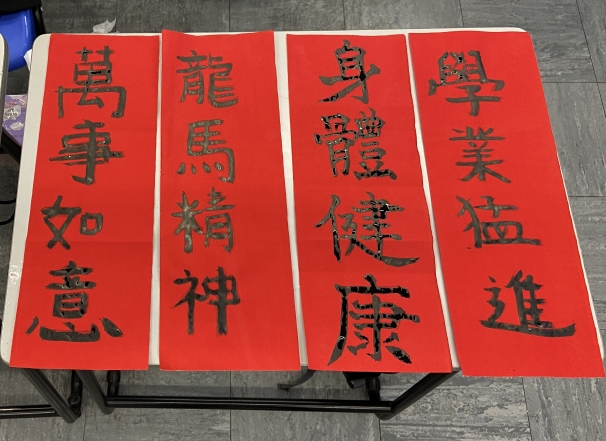 學業猛進
身體健康
龍馬精神
萬事如意